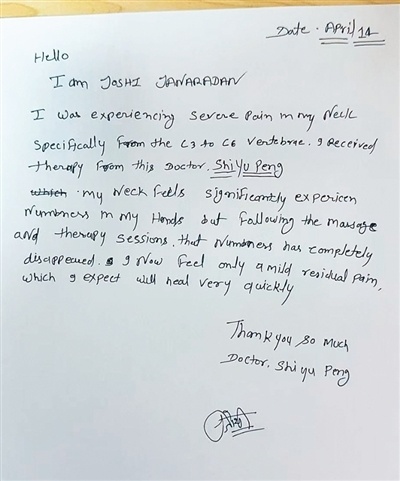 Date. April 14
Hello
I am JOSHI JANARADAN
I was experiencing severe pain in my Neck
specifically from the C3 to C6 vertebrae. I Received
therapy from this Doctor. Shi Yu Peng
which my Neck feels significantly expericen
Numbness in my Hands but following the massage
and therapy sessions. that Numbness has completely
disappeared. I Now feel only a mild residual pain,
which I expect will heal very quickly
Thank you so Much
Doctor. Shi yu Peng